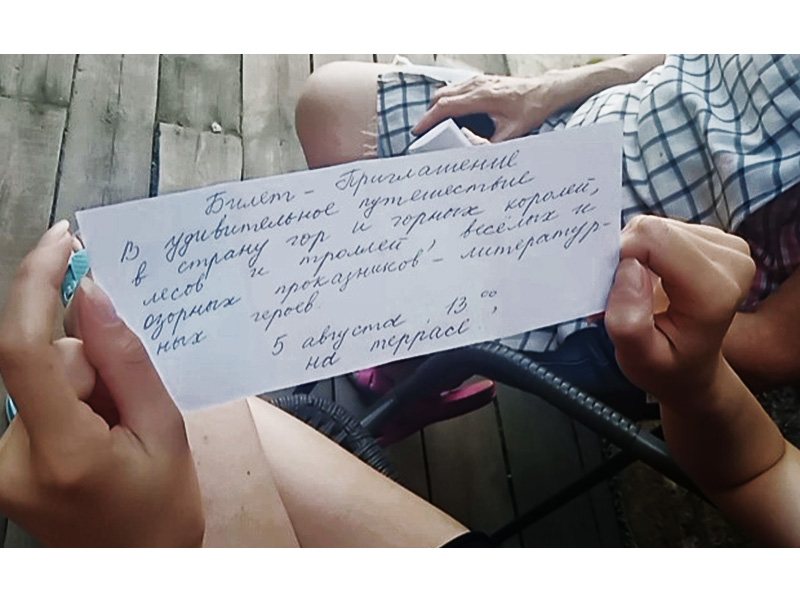 Билет - Приглашение
В удивительное путешествие
в страну гор и горных королей,
лесов и троллей, весёлых и
озорных проказников - литератур-
ных героев.
5 августа 13 00,
на террасе!